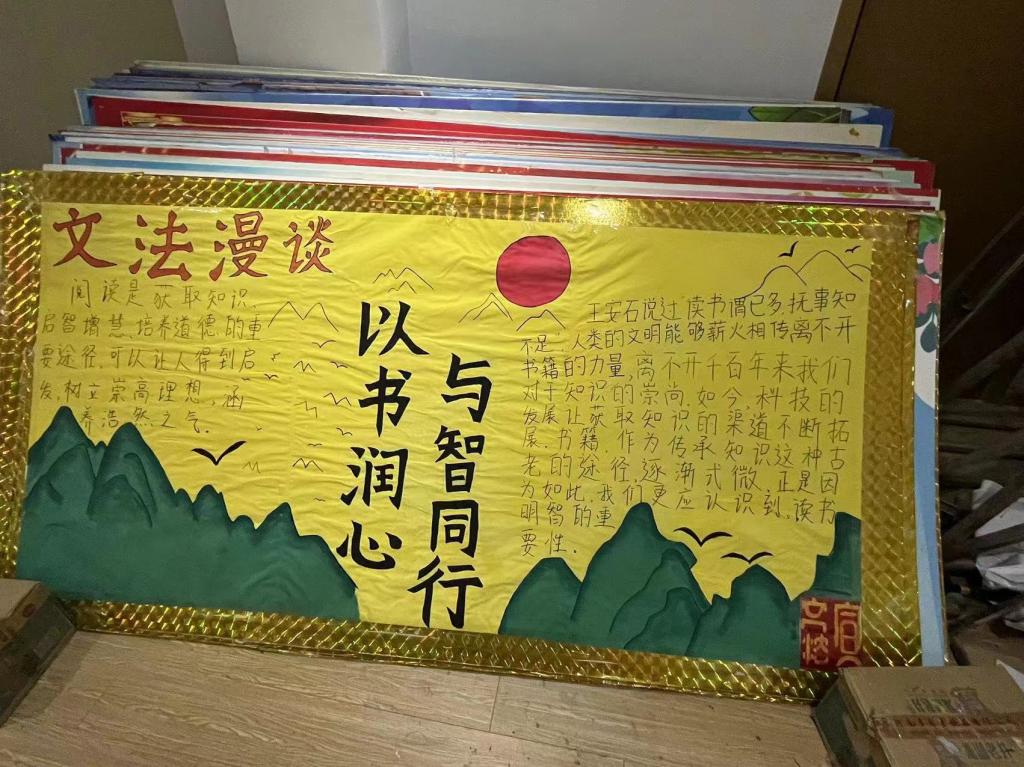 文法漫谈
阅读是获取知识,
启智增慧,培养道德的重
要途径,可以让人得到启
发,树立崇高理想,涵
养浩然之气.
以书润心
与智同行
王安石说过读书谓已多,抚事知
不足,人类的文明能够薪火相传,离不开
书籍的力量,离不开千百年来我们
对于知识的崇尚,如今,科技的
发展让获取知识的渠道不断拓
展,书籍,作为传承知识这种古
老的途径,逐渐式微,正是因
为如此,我们更应认识到,读书
明智的重
要性.